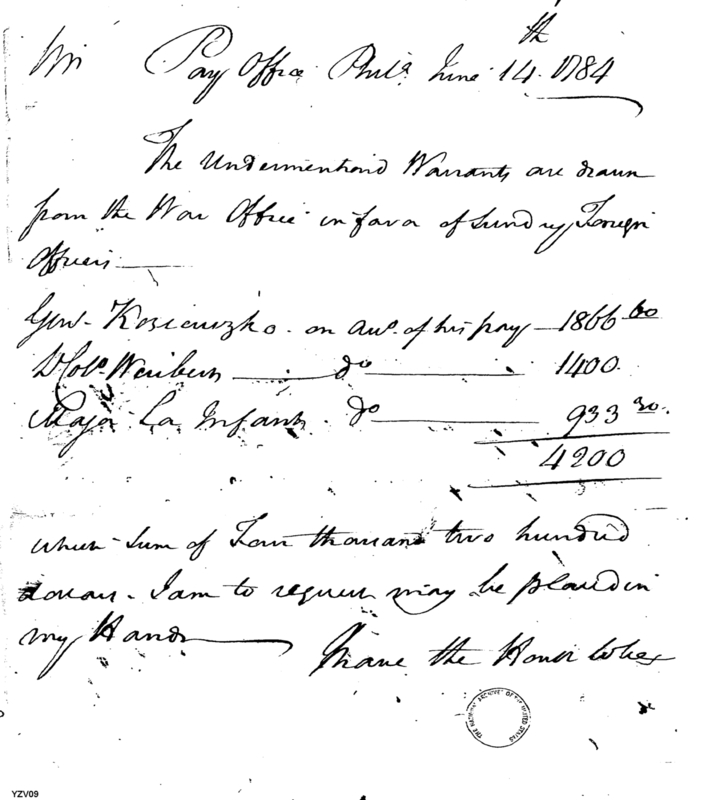 Sir Pay Office Phila. June 14th. 1784
The Undermentiond Warrants are drawn
from the War Office in favor of Sundry Foreign
Officers
Genl. Kosicuzko. on acco. of his pay 1866 60
Lt Colo. Weibern do 1400.
Major La Infant. do 933 30.
4200
which Sum of Four thousand two hundred
dollars. I am to request may be placed in
my Hands
I have the Honor to be &c
THE NATIONAL ARCHIVES OF THE UNITED STATES
YZV09